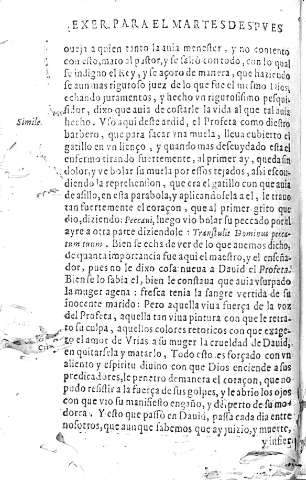 EXER. PARA EL MARTES DESPVES
oueja a quien tanto la auia menester, y no contento
con esto, mato al pastor, y se salio con todo, con lo qual
se indigno el Rey, y se açoro de manera, que haziendo
se aun mas riguroso juez de lo que fue el mismo Dios,
echando juramentos, y hecho vn rigurosissimo pesqui-
sidor, dixo que auia de costarle la vida al que tal auia
Simile.
hecho. Vso aqui deste ardid, el Profeta como diestro
barbero, que para sacar vna muela, lleua cubierto el
gatillo en vn lienço, y quando mas descuydado esta el
enfermo tirando fuertemente, al primer ay, queda sin
dolor, y ve bolar su muela por essos tejados, assi escon-
diendo la reprehension, que era el gatillo con que auia
de asillo, en esta parabola, y aplicandosela a el, le trauo
tan fuertemente el coraçon, que al primer grito que
dio, diziendo: Peccaui, luego vio bolar su peccado por el
ayre a otra parte diziendole: Transtulit Dominus pecca-
tum tuum. Bien se echa de ver de lo que auemos dicho,
de quanta importancia fue aqui el maestro, y el enseña-
dor, pues no le dixo cosa nueua a Dauid el Profeta.
Bien se lo sabia el, bien le constaua que auia vsurpado
la muger agena: fresca tenia la sangre vertida de su
inocente marido: Pero aquella viua fuerça de la voz
del Profeta, aquella tan viua pintura con que le retra-
to su culpa, aquellos colores retoricos con que exage-
ro el amor de Vrias a su muger la crueldad de Dauid,
en quitarsela y matarlo. Todo esto es forçado con vn
aliento y espiritu diuino con que Dios enciende a sus
predicadores, le penetro de manera el coraçon, que no
pudo resistir a la fuerça de sus golpes, y le abrio los ojos
con que vio su manifiesto engaño, y desperto de su mo-
dorra. Y esto que passò en Dauid, passa cada dia entre
nosotros, que aunque sabemos que ay juizio, y muerte,
y infier